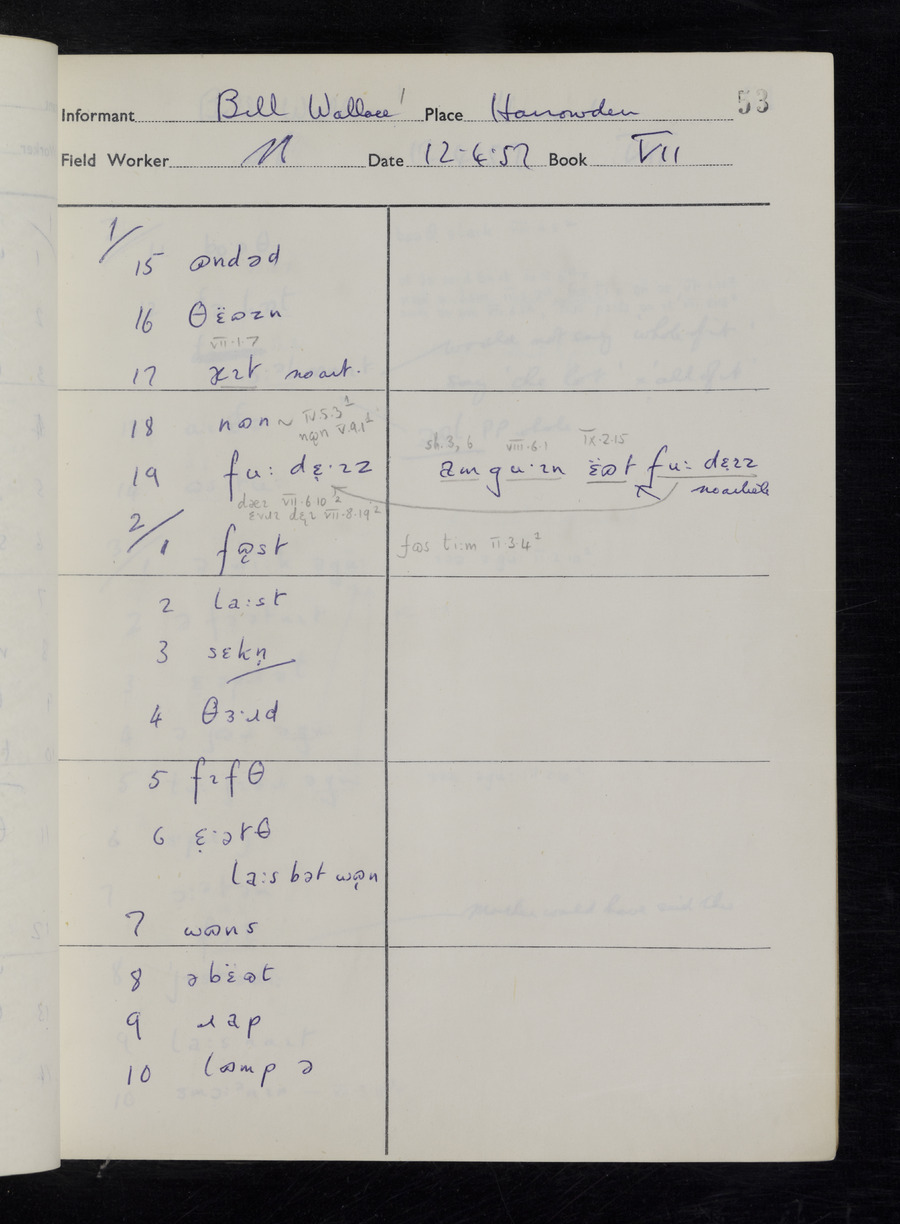 53
Informant Bill Wallace Place Harrowden
Field Worker N Date 12·6·57 Book VII
1/
15 ɷndəd
16 θɛ̈ɷzn
VII·1·7
17 no art.
18 nɷn ~ IV.5.3¹
nɷ̨n V.9.1¹
19 fu: dɛ̨·ɪz
sh.3, 6 VIII·6·1 IX·2·15
amgu·ɪn ɛ̈ɷt fu: dɛɪz
no article
dæɪ VII·6·10²
ɛvɹɪ dɛ̨ɪ VII·8·19²
2/
1 fɷ̨st fɷs ti:m II·3·4²
2 la:st
3 sɛkn̩
4 θɜ·ɹd
5 fɪfθ
6 ɛ̨·ətθ
la:s bət wɷ̨n
7 wɷns
8 əbɛ̈ɷt
9 ɹap
10 lɷmp ə